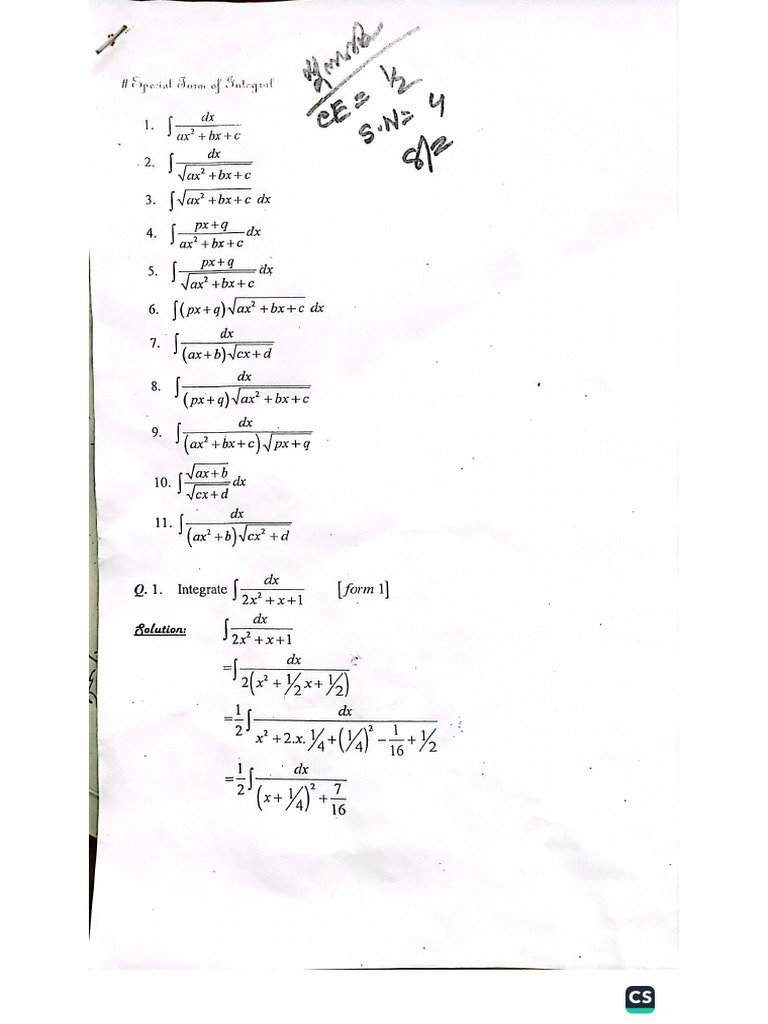 # Special Form of Integral
CE = 1/2
S.N = 4
8/2
1. ∫ dx / (ax² + bx + c)
2. ∫ dx / √(ax² + bx + c)
3. ∫ √(ax² + bx + c) dx
4. ∫ (px + q) / (ax² + bx + c) dx
5. ∫ (px + q) / √(ax² + bx + c) dx
6. ∫ (px + q) √(ax² + bx + c) dx
7. ∫ dx / ((ax + b) √(cx + d))
8. ∫ dx / ((px + q) √(ax² + bx + c))
9. ∫ dx / ((ax² + bx + c) √(px + q))
10. ∫ √(ax + b) / √(cx + d) dx
11. ∫ dx / ((ax² + b) √(cx² + d))
Q. 1. Integrate ∫ dx / (2x² + x + 1) [form 1]
Solution: ∫ dx / (2x² + x + 1)
= ∫ dx / (2(x² + 1/2 x + 1/2))
= 1/2 ∫ dx / (x² + 2.x.1/4 + (1/4)² − 1/16 + 1/2)
= 1/2 ∫ dx / ((x + 1/4)² + 7/16)
CS